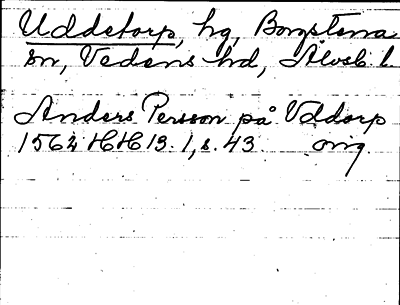 Uddetorp, hg, Borgstena
sn, Vedens hd, Älvsb. l
Anders Persson på Uddorp
1562 HH 13. 1, s. 43 orig.